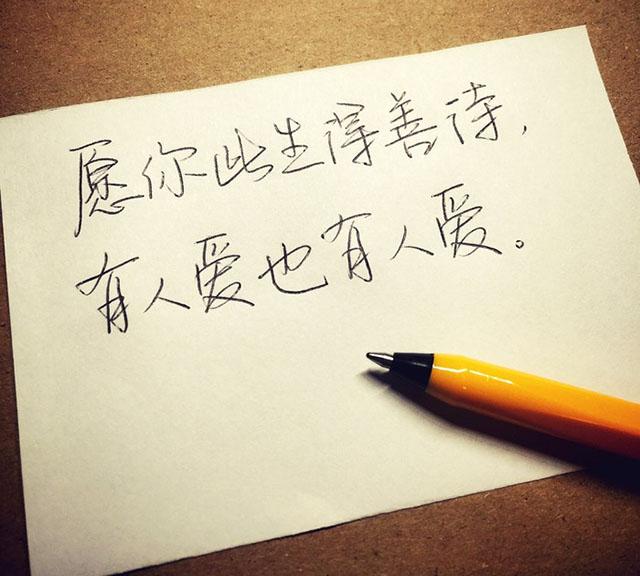 愿你此生得善待,
有人爱也有人爱。